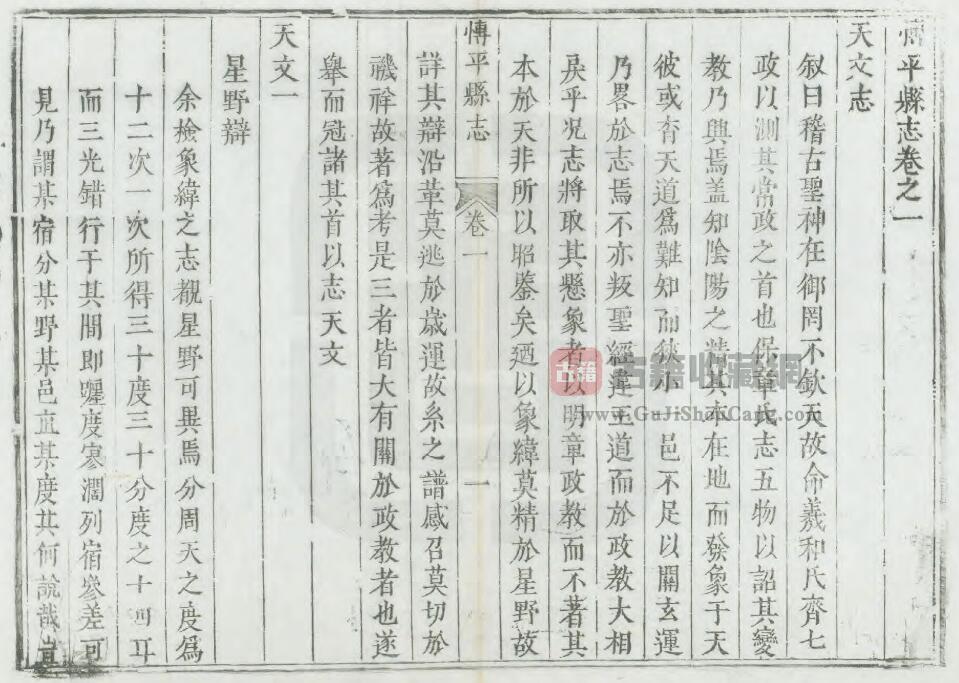 博平縣志卷之一
天文志
叙曰稽古聖神在御罔不欽天故命羲和氏齊七
政以測其常政之首也保章氏志五物以詔其變
教乃興焉盖知陰陽之精其本在地而發象于天
彼或杳天道爲難知而狹小 邑不足以關玄運
乃畧於志焉不亦叛聖經違王道而於政教大相
戾乎况志將取其懸象者以明章政教而不著其
本於天非所以昭鑒矣廼以象緯莫精於星野故
博平縣志
卷一
一
詳其辯沿革莫逃於歲運故系之譜感召莫切於
禨祥故著爲考是三者皆大有關於政教者也遂
舉而冠諸其首以志天文
天文一
星野辯
余撿象緯之志觀星野可異焉分周天之度爲
十二次一次所得三十度三十分度之十四耳
而三光錯行于其間即躔度寒濶列宿參差可
見乃謂某宿分某野某邑直某度其何說哉豈
古籍
古籍收藏網
www.GuJiShouCang.com